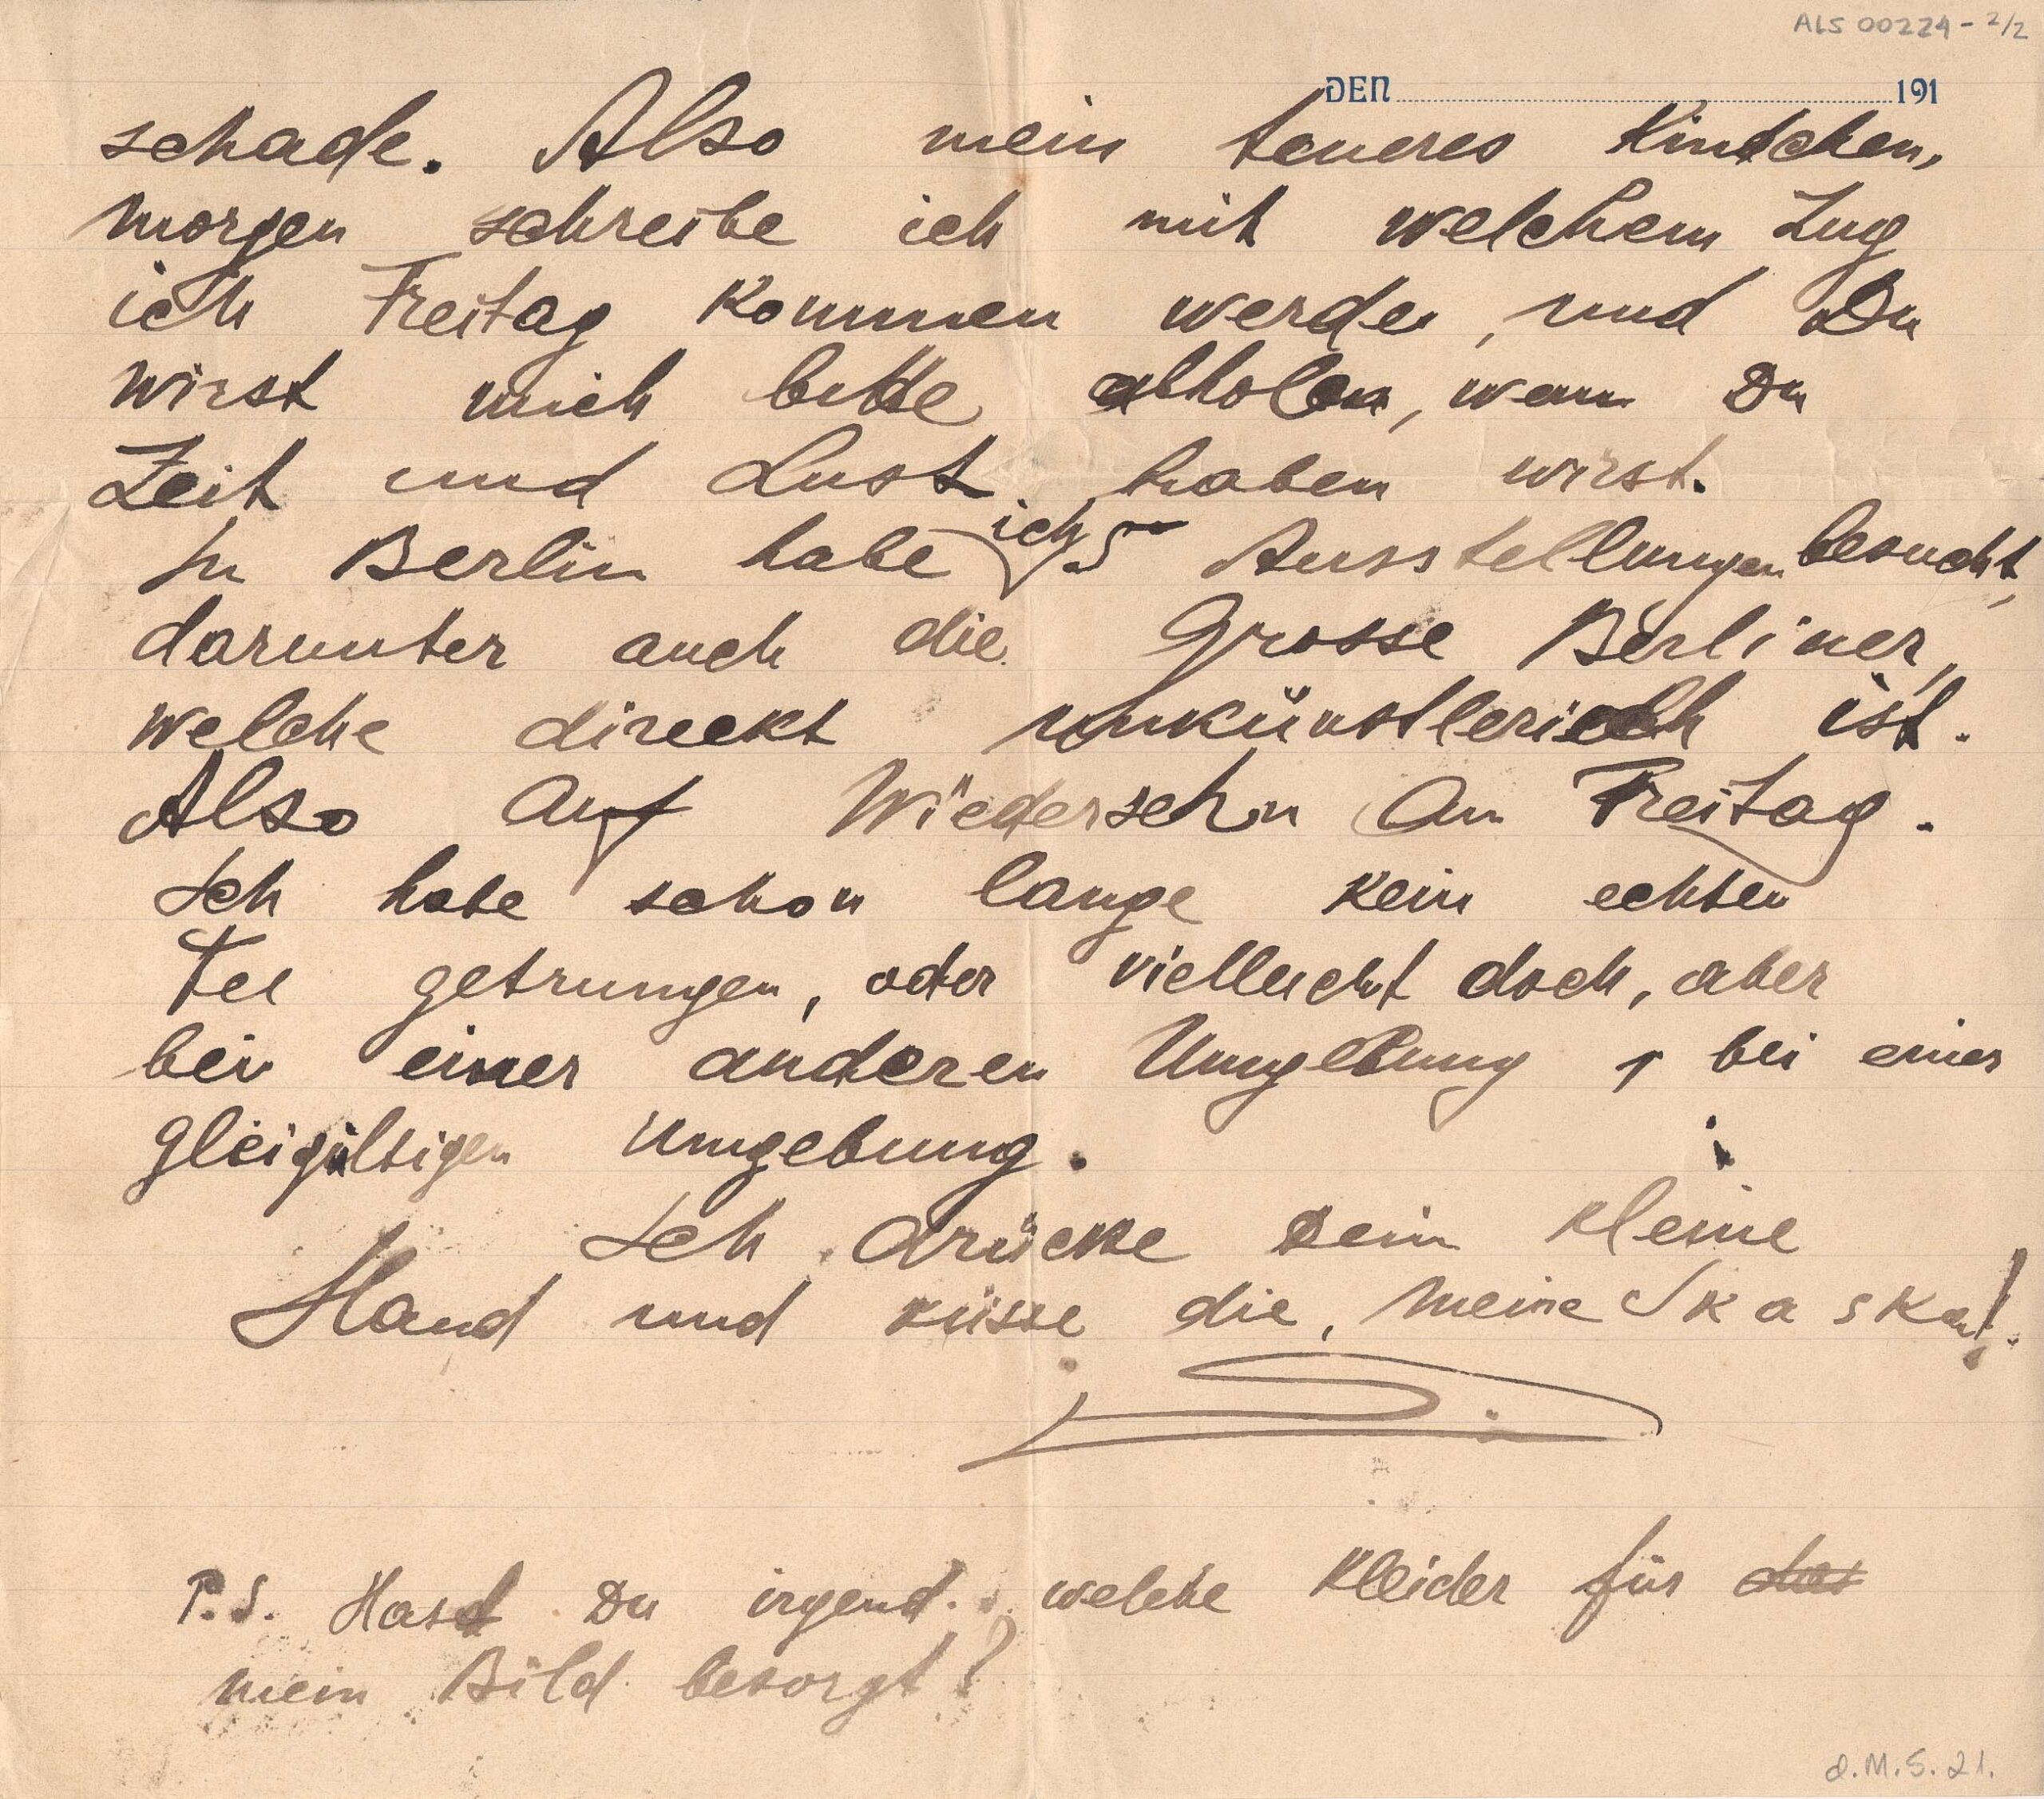 ALS 00224 - 2/2
DEN 191
schade. Also mein teueres Kindchen,
morgen schreibe ich mit welchem Zug
ich Freitag kommen werde, und Du
wirst mich bitte abholen, wenn Du
Zeit und Lust haben wirst.
In Berlin habe ich 5 Ausstellungen besucht,
darunter auch die Grosse Berliner,
welche direckt unkünstlerisch ist.
Also auf Wiedersehn am Freitag.
Ich habe schon lange kein echten
Tee getrungen, oder vielleicht doch, aber
bei einer anderen Umgebung, bei einer
gleigültigen Umgebung.
Ich drücke Dein kleine
Hand und küsse die, meine Skaska!
P.S. Hast Du irgend welche Kleider für das
mein Bild besorgt?
d.M.S. 21.